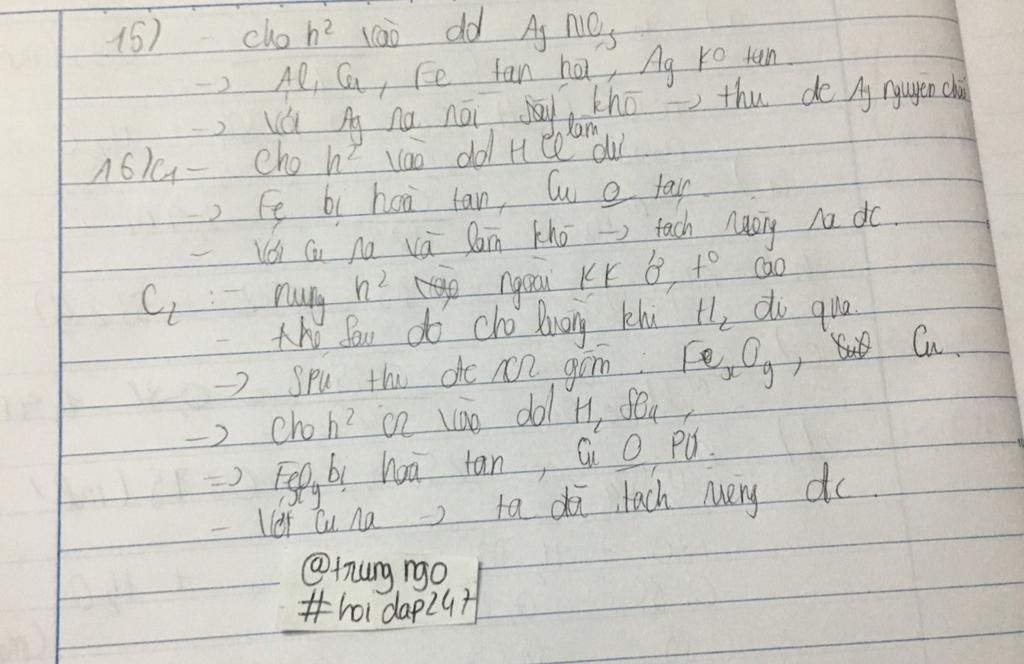 15) - cho h² vào dd AgNO₃
-> Al, Cu, Fe tan hết, Ag ko tan.
-> Vớt Ag ra rồi sấy khô -> thu dc Ag nguyên chất
16) C₁ - Cho h² vào dd HCl làm dư
-> Fe bị hoà tan, Cu O tan.
- Vớt Cu ra và làm khô -> tách riêng ra dc.
C₂ : - nung h² ngoài KK ở t° cao
- sau đó cho luồng khí H₂ đi qua.
-> SPU thu dc CR gồm : FexOy, Cu.
-> Cho h² CR vào dd H₂SO₄,
=> FexOy bị hoà tan, Cu O PƯ.
- Vớt Cu ra -> ta đã tách riêng dc.
@trung ngo
#hoidap247